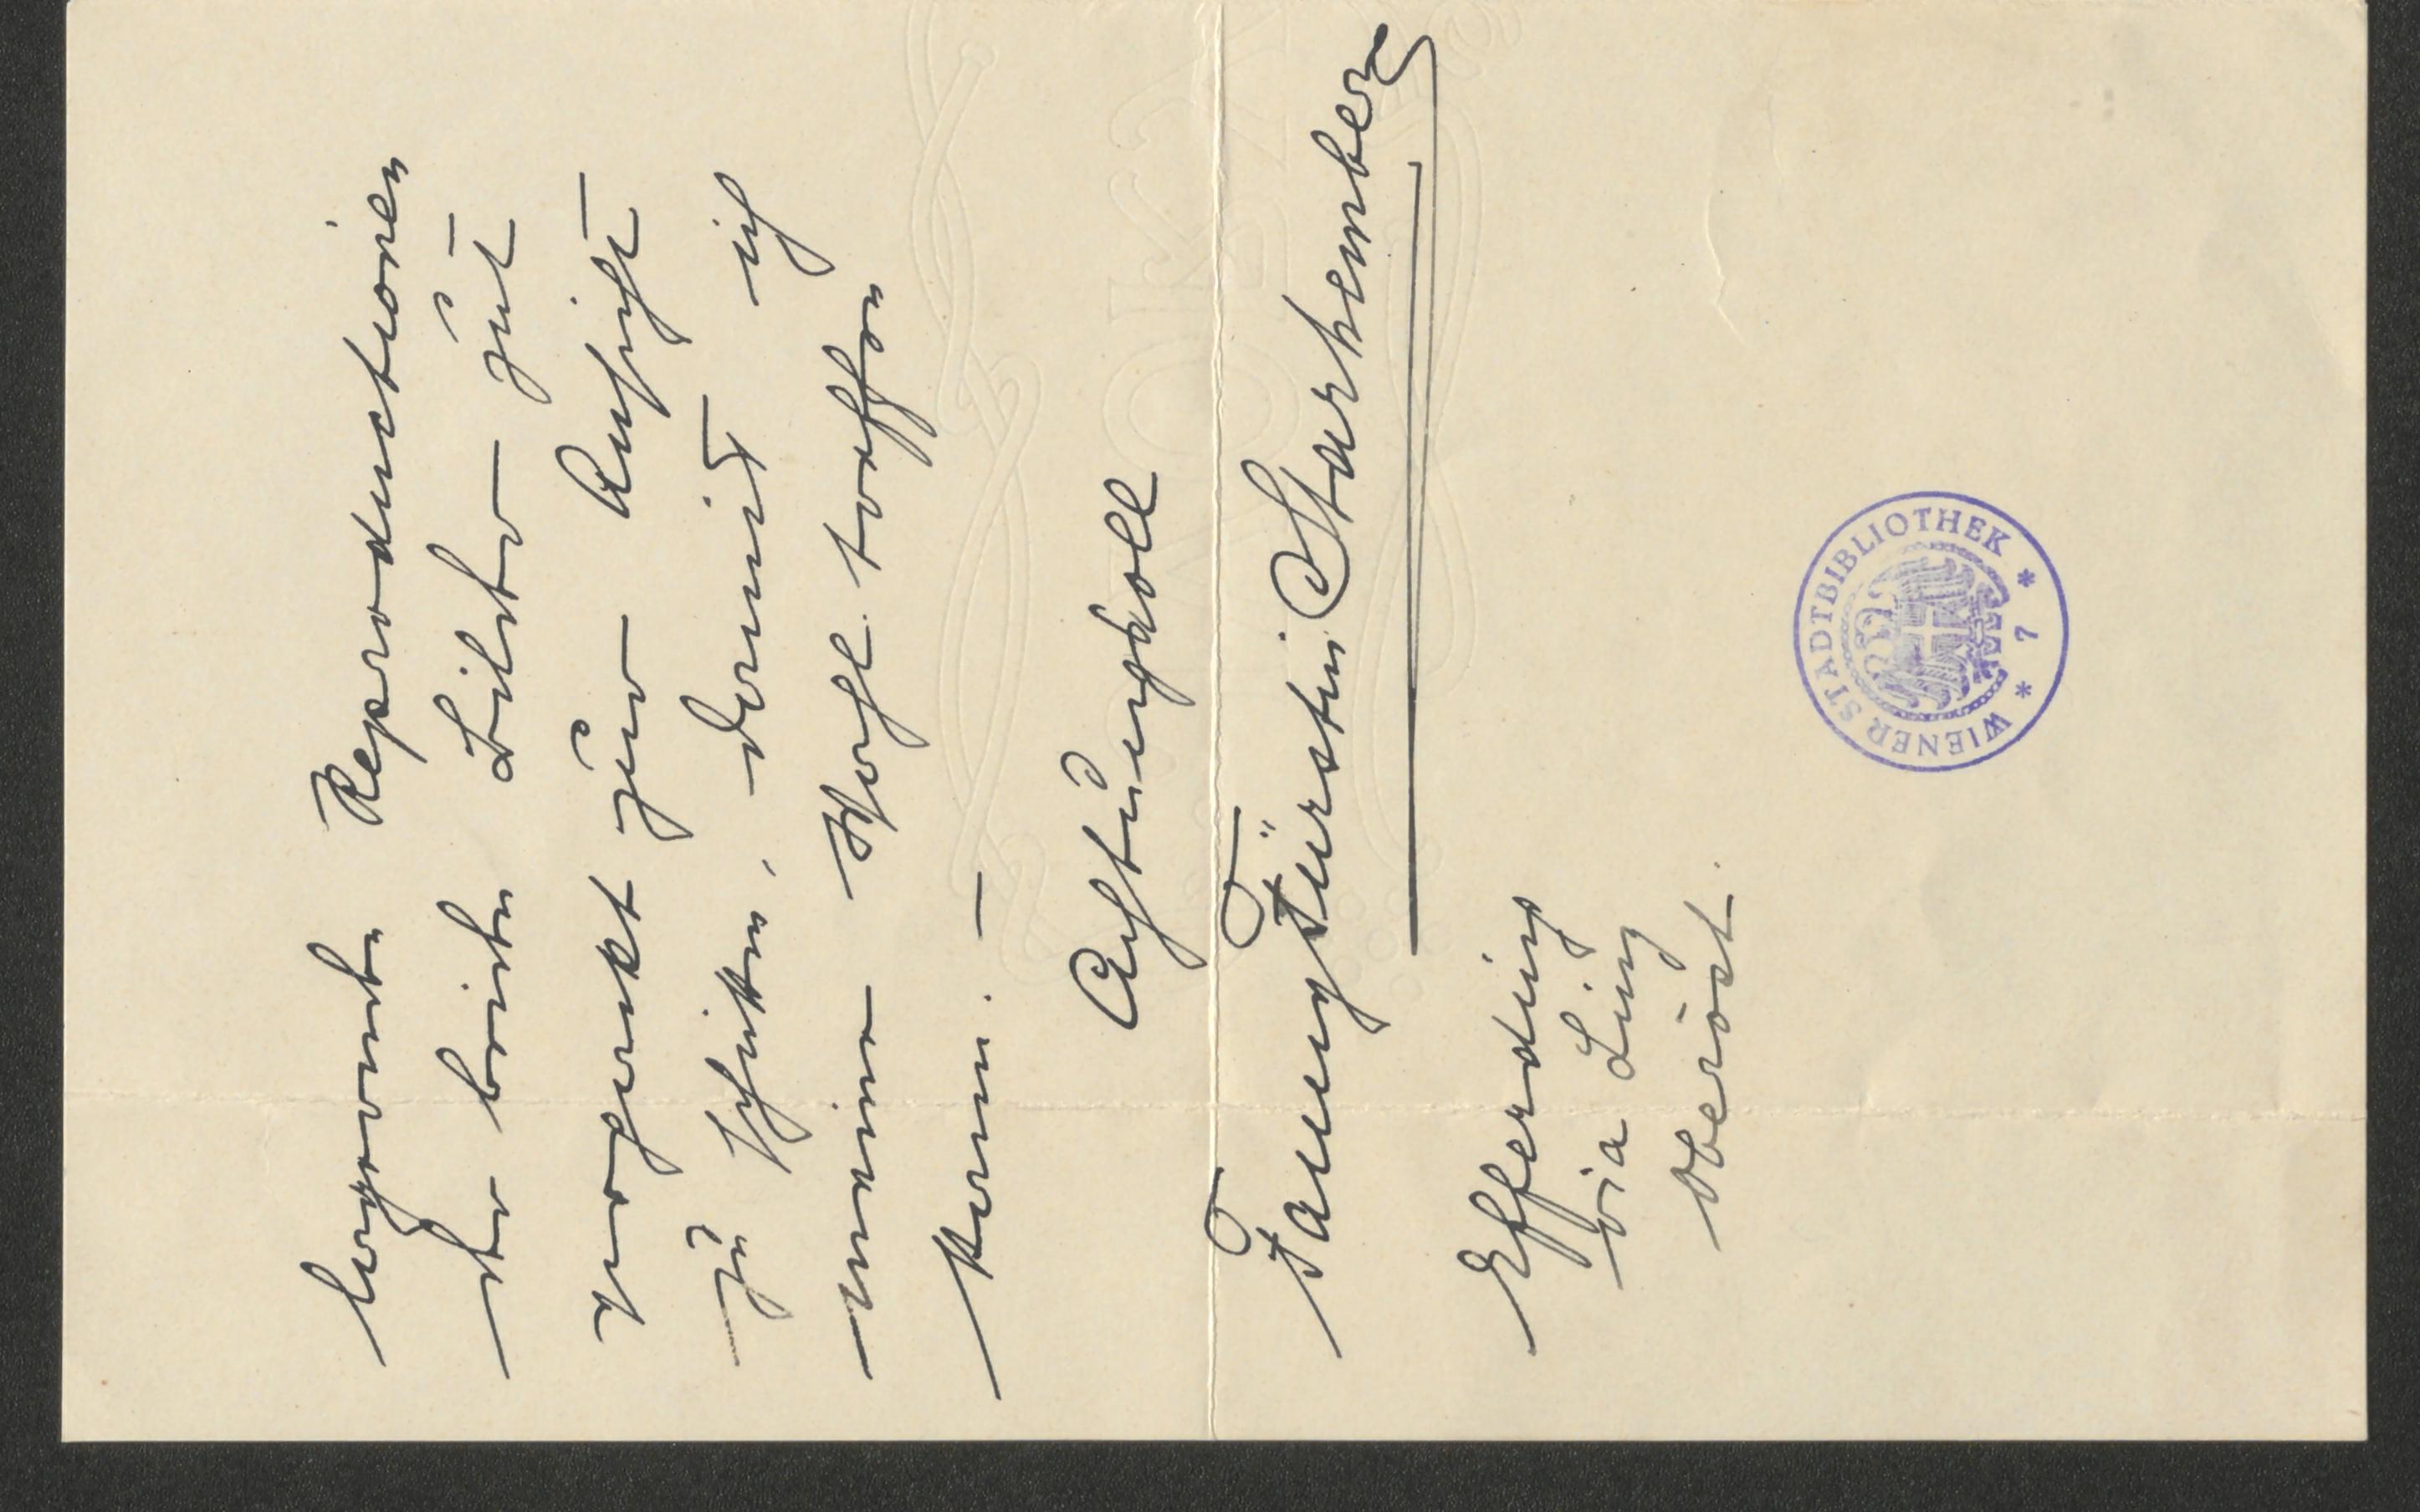 Reproductionen
der beiden Bilder gut
verpackt zur Ansicht
zu schicken, damit ich
meine Wahl treffen
kann. —
Achtungsvoll
Fanny Fürstin Starhemberg
Efferding
via Linz
Oberöst.
WIENER STADTBIBLIOTHEK * 7 *